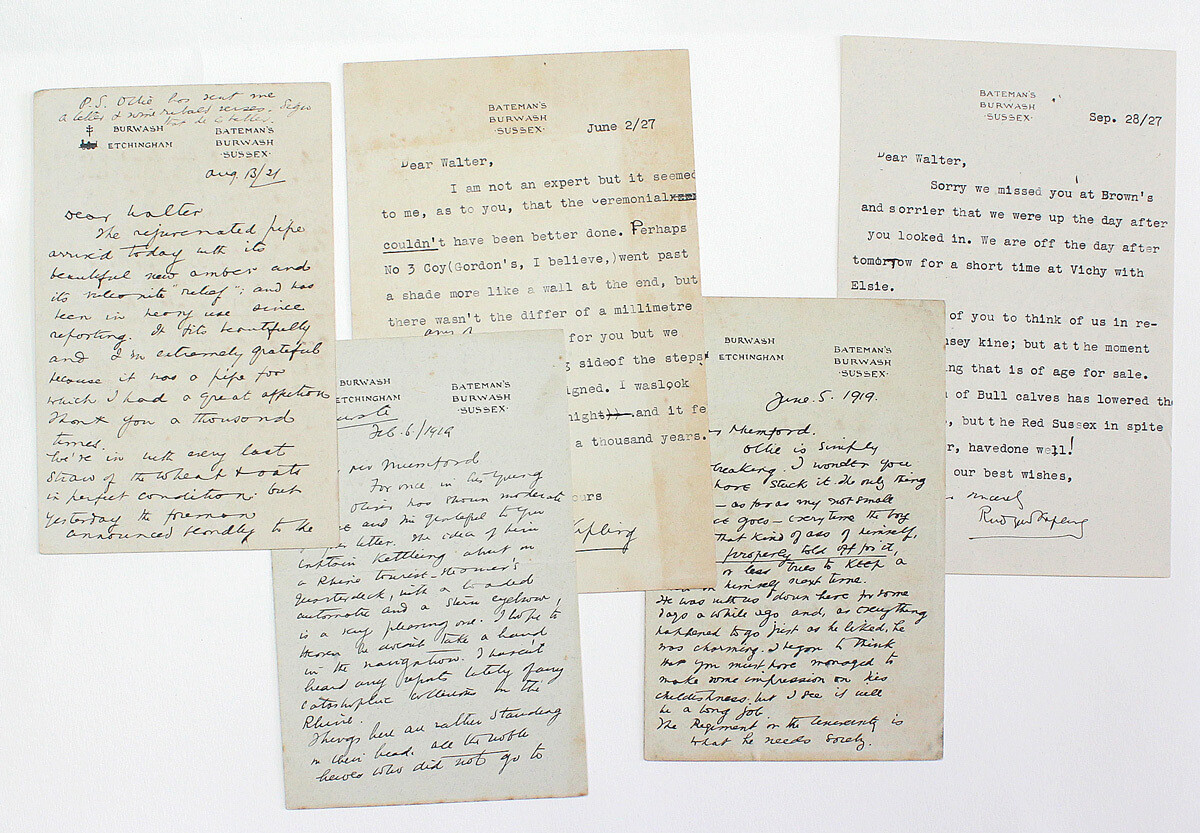 P.S. Ollie has sent me
a letter & some ribald verses.
BURWASH
ETCHINGHAM
BATEMAN'S
BURWASH
·SUSSEX·
Aug. 13/21
Dear Walter
The rejuvenated pipe
arriv'd today with its
beautiful new amber and
its "relief"; and has
been in heavy use since
reporting. It fits beautifully
and I'm extremely grateful
because it was a pipe for
which I had a great affection
Thank you a thousand
times.
We're in with every last
straw of the wheat & oats
in perfect condition: but
yesterday the foreman
announced to the
BATEMAN'S
BURWASH
·SUSSEX·
June 2/27
Dear Walter,
I am not an expert but it seemed
to me, as to you, that the ceremonial
couldn't have been better done. Perhaps
No 3 Coy(Gordon's, I believe,)went past
a shade more like a wall at the end, but
there wasn't the differ of a millimetre
for you but we
sideof the steps
igned. I waslook
night)) .and it fe
a thousand years.
ours
Kipling
BATEMAN'S
BURWASH
·SUSSEX·
Sep. 28/27
Dear Walter,
Sorry we missed you at Brown's
and sorrier that we were up the day after
you looked in. We are off the day after
tomorrow for a short time at Vichy with
Elsie.
of you to think of us in re-
sey kine; but at the moment
ng that is of age for sale.
of Bull calves has lowered the
, but the Red Sussex in spite
r, havedone well!
our best wishes,
sincerely
Rudyard Kipling
BURWASH
ETCHINGHAM
BATEMAN'S
BURWASH
·SUSSEX·
Feb. 6/1919
Mumford
For once in his young
Oliver has shown moderate
and I'm grateful to you
letter. The idea of him
Captain Kettleing about on
a Rhine tourist-steamer's
quarterdeck, with a loaded
automatic and a stern eyebrow,
is a very pleasing one. I hope to
Heaven he doesn't take a hand
in the navigation. I haven't
heard any reports lately of any
catastrophic collisions on the
Rhine.
Things here are rather standing
on their head. All the noble
heroes who did not go to
BURWASH
ETCHINGHAM
BATEMAN'S
BURWASH
·SUSSEX·
June. 5. 1919.
Mumford.
Ollie is simply
I wonder you
have stuck it. The only thing
— as far as my not small
goes — every time the boy
that kind of ass of himself,
properly told off for it,
or less tries to keep a
himself next time.
He was with us down here for some
days a while ago and, as everything
happened to go just as he liked, he
was charming. I began to think
that you must have managed to
make some impression on his
childishness. but I see it will
be a long job
The Regiment or the University is
what he needs sorely.